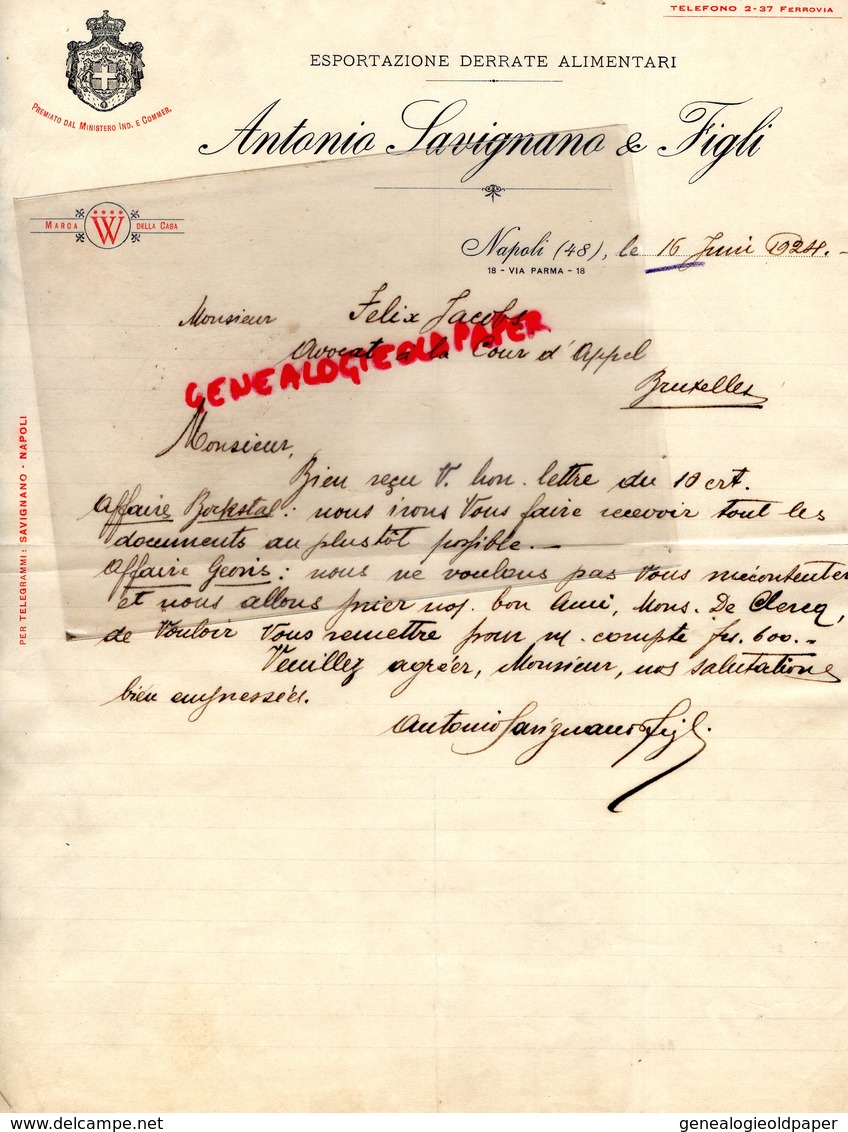 TELEFONO 2-37 FERROVIA
ESPORTAZIONE DERRATE ALIMENTARI
PREMIATO DAL MINISTERO IND. E COMMER.
Antonio Savignano & Figli
MARCA W DELLA CASA
Napoli (48), le 16 Juni 1924.-
18 - VIA PARMA - 18
Monsieur Felix Jacobs
Avocat à la Cour d'Appel
Bruxelles
GENEALOGIEOLDPAPER
Monsieur,
Bien reçu V. hon. lettre du 10 crt.
Affaire Bockstal: nous irons Vous faire recevoir tout les
documents au plustôt possible.-
Affaire Georis: nous ne voulons pas Vous mécontenter
et nous allons prier nos. bon Ami, Mons. De Clercq,
de Vouloir Vous remettre pour n/ compte frs. 600.-
Veuillez agréer, Monsieur, nos salutations
bien empressées.
Antonio Savignano & Figli
PER TELEGRAMMI: SAVIGNANO - NAPOLI
genealogieoldpaper